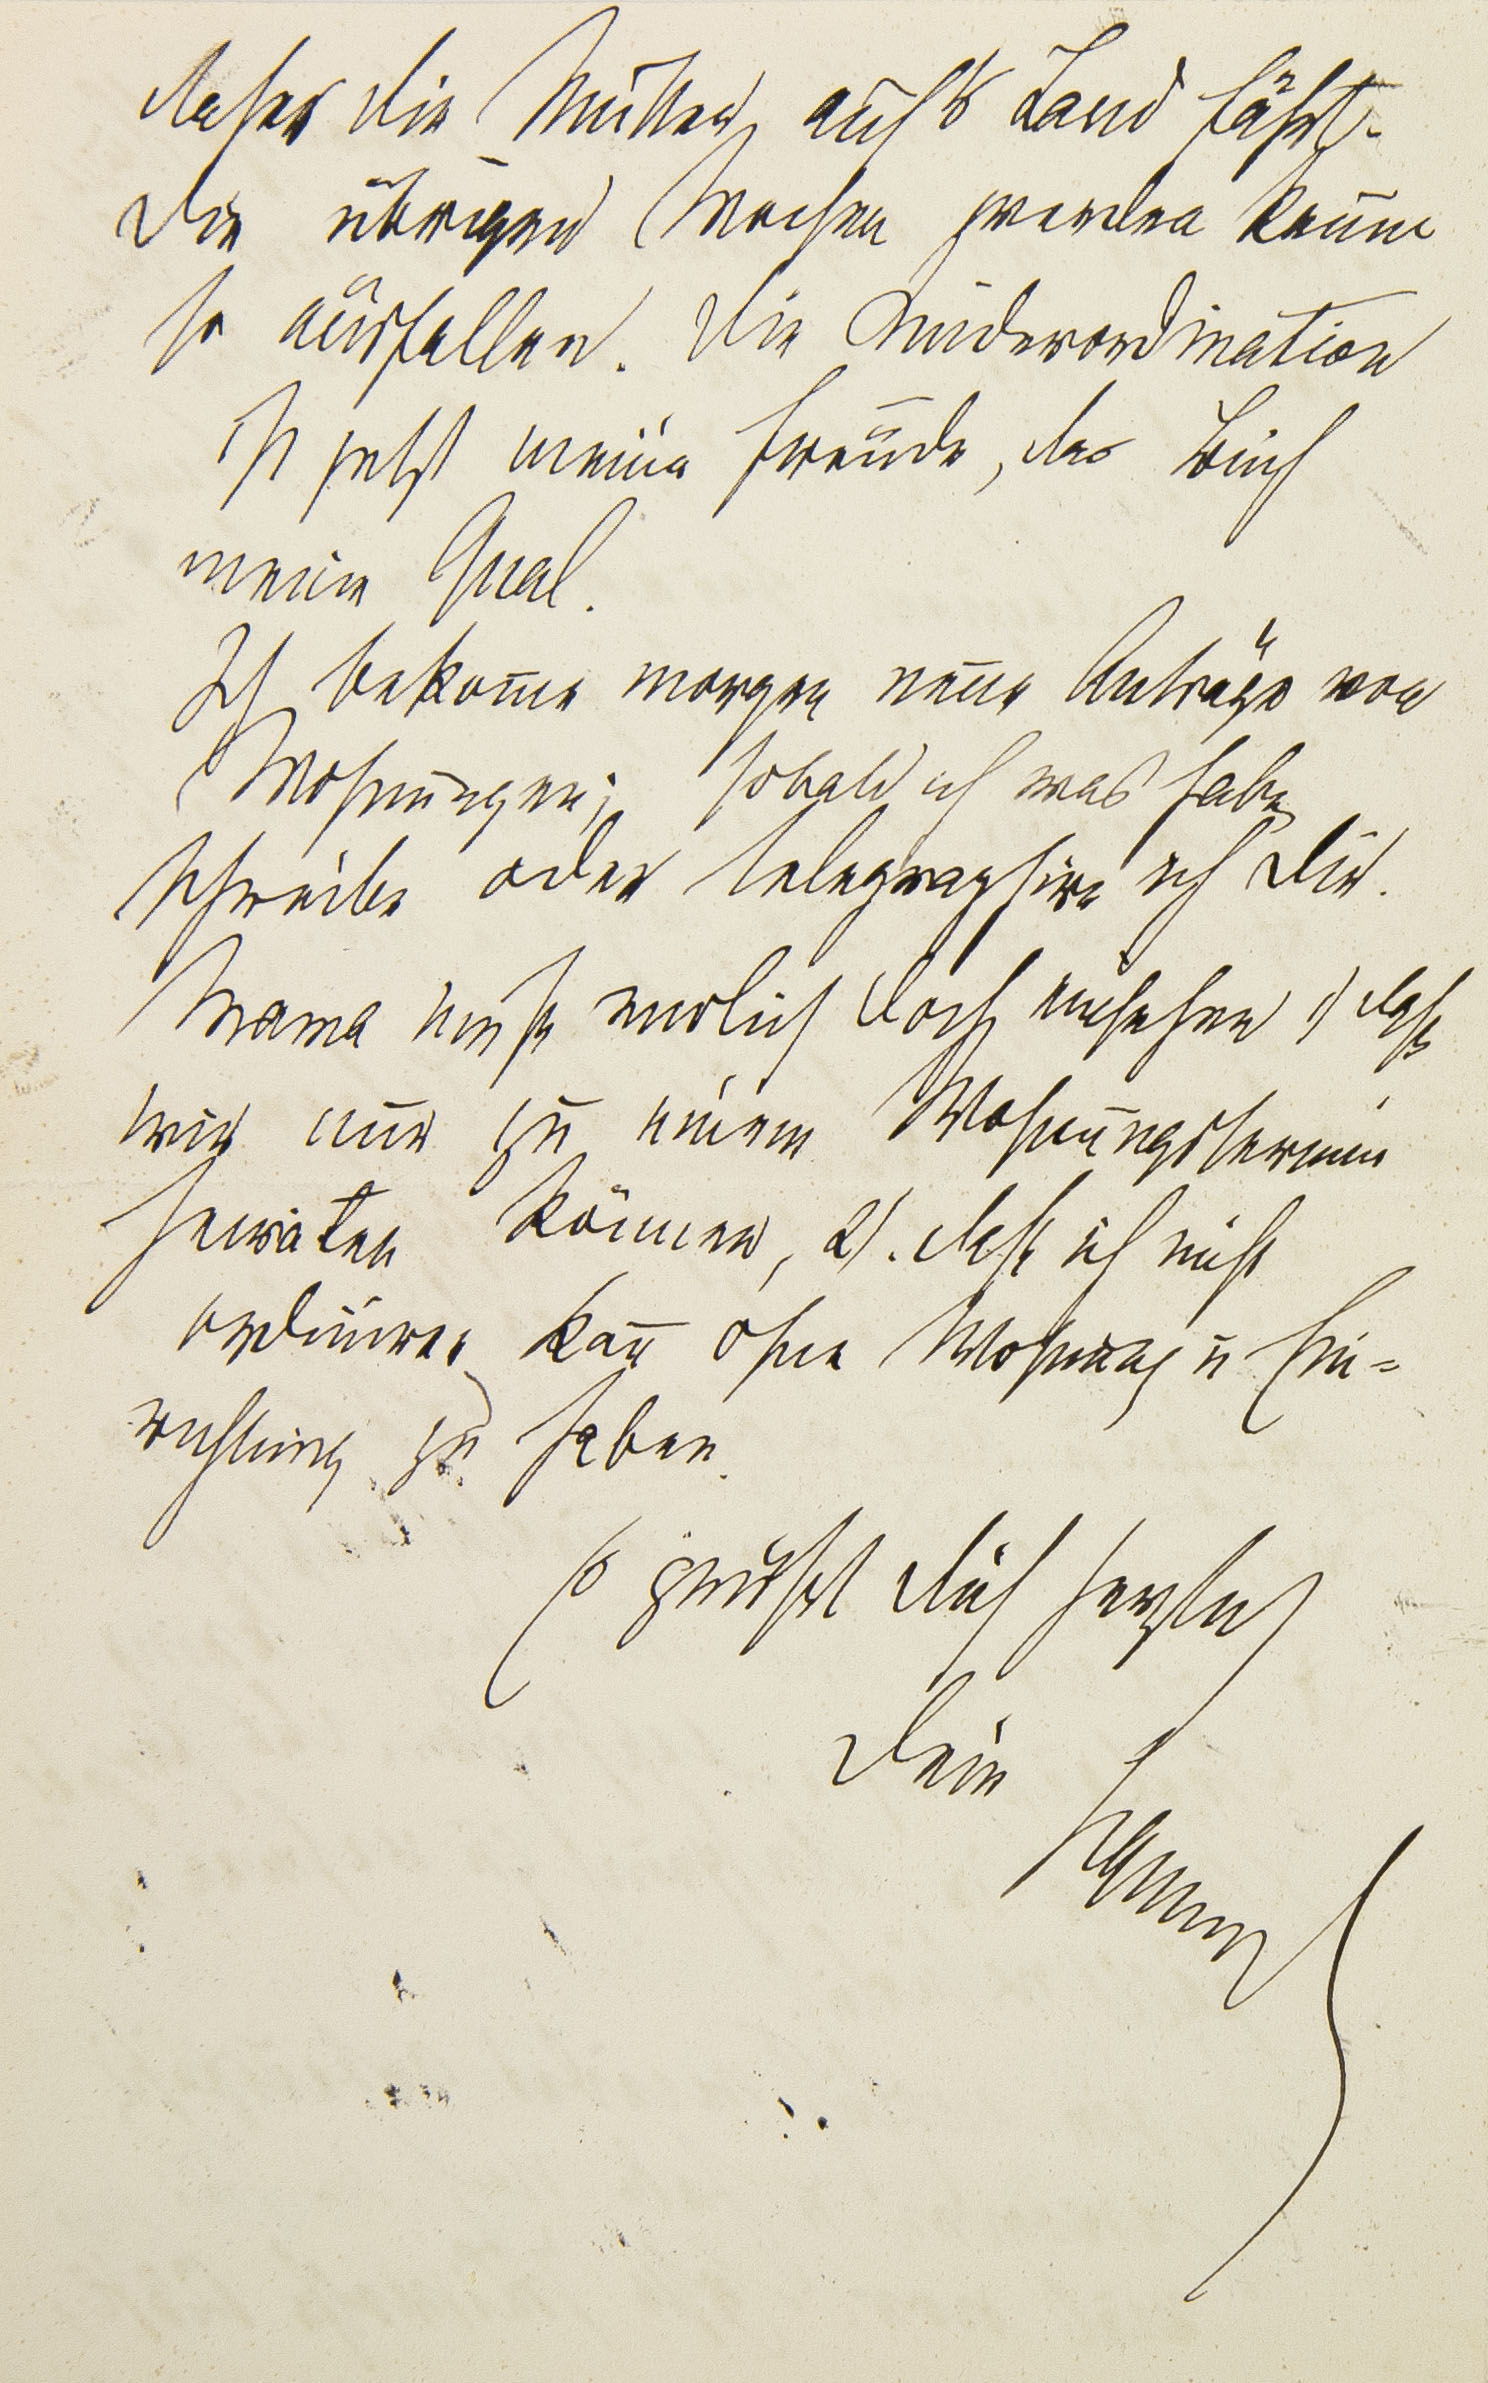 daher die Mutter aufs Land fährt.
Die übrigen Wochen werden kaum
so ausfallen. Die Kinderordination
ist jetzt meine Freude, das Buch
meine Qual.
Ich bekom̄e morgen neue Anträge von
Wohnungen; sobald ich was habe
schreibe oder telegraphire ich Dir.
Mama muß endlich doch einsehen 1) daß
wir nur zu einem Wohnungstermin
heiraten können, 2). daß ich nicht
ordiniren kan̄ ohne Wohnung u Ein=
richtung zu haben.
Es grüßt Dich herzlich
Dein